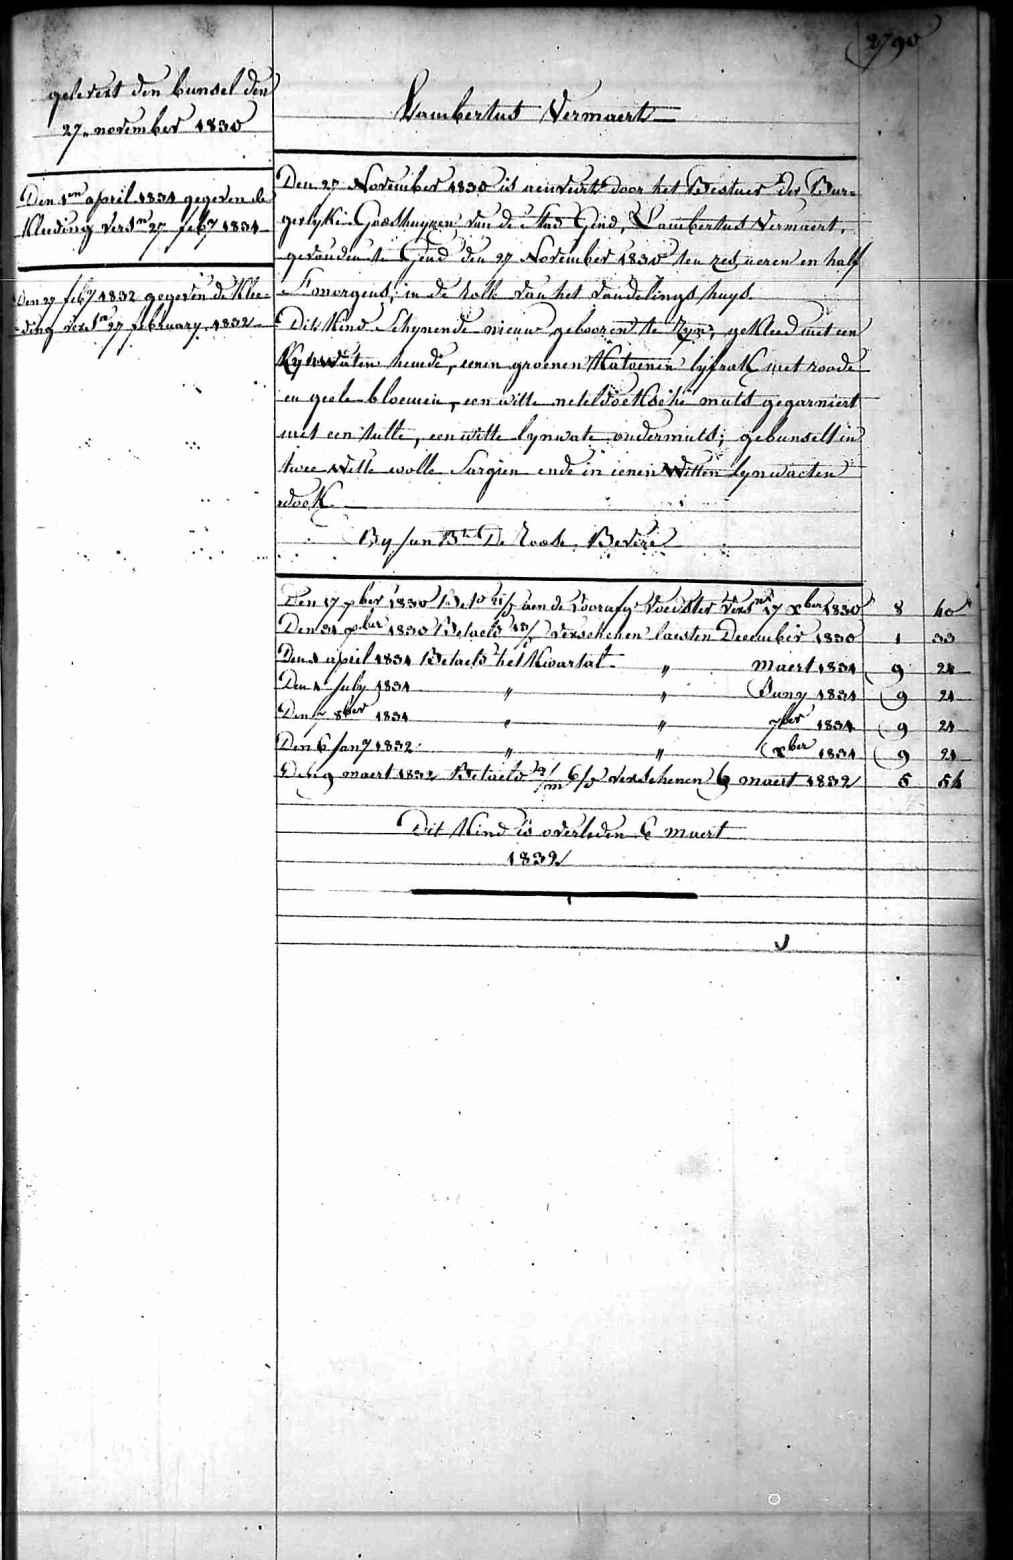 2790
gelevert den bunsel den
27 november 1830
Den 1en april 1831 gegeven de
Kleeding vers.n 27 feby 1831
Den 27 feby 1832 gegeven de Klee-
ding vers.n 27 february 1832
Lambertus Vermaert
Den 27 November 1830 is aenveirt door het Bestuer der Bur-
gerlyke Godshuyzen van de stad Gend, Lambertus Vermaert,
gevonden te Gend den 27 November 1830 ten zes ueren en half
'smorgens, in de rolle van het vondelings huys.
Dit Kind schynende nieuw gebooren te zyn, gekleed met een
Lynwaten hemde, eenen groenen Katoenen lyfrok met roode
en geele bloemen, een witte neteldoeksche muts gegarniert
met een tulle, een witte lynwate ondermuts; gebunselt in
twee witte wolle Sargien ende in eenen witten lynwaeten
doek.
By Jan Bte De Roose, Bevere
Den 17 xber 1830 Bet.o aen de voorafg. voedster vers.n 17 xber 1830 8 40
Den 31 xber 1830 Betaelt verschenen laesten December 1830 1 33
Den 1 april 1831 Betaelt het Kwartal " maert 1831 9 21
Den 1 July 1831 " " Juny 1831 9 21
Den 8ber 1831 " " 7ber 1831 9 21
Den 6 Jany 1832 " " xber 1831 9 21
Den 9 maert 1832 Betaelt verschenen 6 maert 1832 5 54
Dit Kind is overleden 6 maert
1832